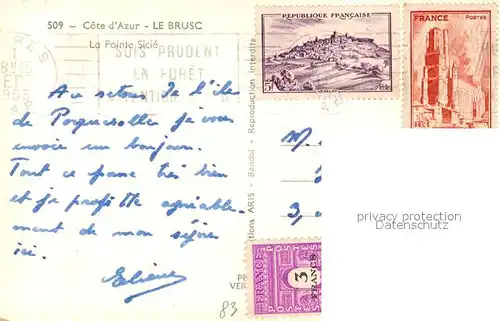 509 - Côte d'Azur - LE BRUSC
La Pointe Sicié
SOIS PRUDENT
EN FORÊT
ATTENTION
1953
RÉPUBLIQUE FRANÇAISE
5F
FRANCE POSTES
Au retour de l'île
de Porquerolle je vous
envoie un bonjour.
Tout ce passe très bien
et je profite agréable-
ment de mon séjour
ici.
Eliane
83
ARIS - Bandol - Reproduction interdite
M.
3,
FRANCE
3
FRANCS
POSTES
PE
VER
privacy protection
Datenschutz